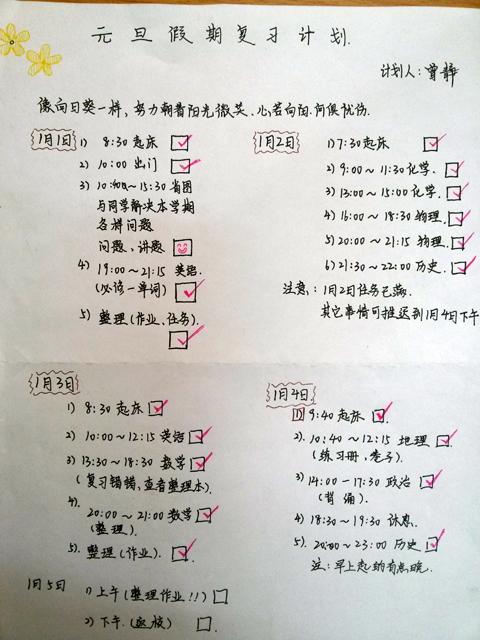 元旦假期复习计划.
计划人: 曾静
像向日葵一样,努力朝着阳光微笑.心若向阳.何俱忧伤.
1月1日
1) 8:30 起床
2) 10:00 出门
3) 10:40～15:30 省图
与同学解决本学期
各样问题
问题、讲题
4) 19:00～21:15 英语.
(必修一单词)
5) 整理(作业、任务).
1月2日
1) 7:30 起床
2) 9:00～11:30 化学.
3) 13:00～15:00 化学.
4) 16:00～18:30 物理.
5) 20:00～21:15 物理.
6) 21:30～22:00 历史.
注意: 1月2日任务已满.
其它事情可推迟到1月4日下午
1月3日
1) 8:30 起床
2) 10:00～12:15 英语
3) 13:30～18:30 数学
(复习错错,查看整理本).
4).
20:00～21:00 数学
(整理).
5). 整理(作业).
1月4日
1) 9:40 起床
2). 10:40～12:15 地理
(练习册,卷子).
3) 14:00-17:30 政治
(背诵).
4) 18:30～19:30 休息.
5). 20:00～23:00 历史
注:早上起的有点晚.
1月5日
1) 上午(整理作业!!)
2) 下午.(返校)